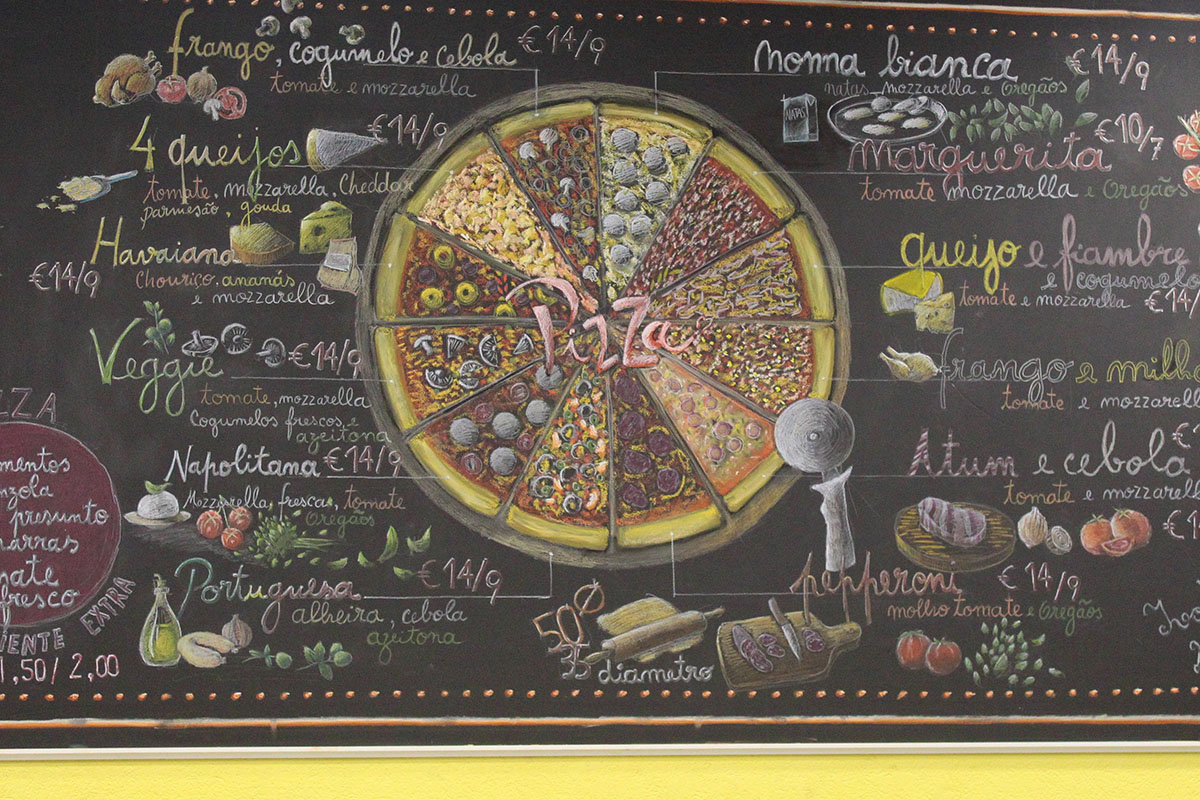 frango, cogumelo e cebola €14/9
tomate e mozzarella
4 queijos €14/9
tomate, mozzarella, Cheddar
parmesão, gouda
Havaiana
€14/9
Chouriço, ananás
e mozzarella
Veggie €14/9
tomate, mozzarella
Cogumelos frescos e
azeitona
Napolitana €14/9
Mozzarella, fresca, tomate
Oregãos
Portuguesa €14/9
alheira, cebola
azeitona
ZZA
mentos
presunto
fresco
EXTRA
1,50/2,00
Pizza
50
35 diametro
nonna bianca €14/9
natas, mozzarella e Oregãos
NATAS
€10/7
Marguerita
tomate mozzarella e Oregãos
queijo e fiambre
e cogumelo
tomate e mozzarella €14
frango e milho
tomate e mozzarella
Atum e cebola
€
tomate e mozzarella
€1
pepperoni €14/9
molho tomate e Oregãos